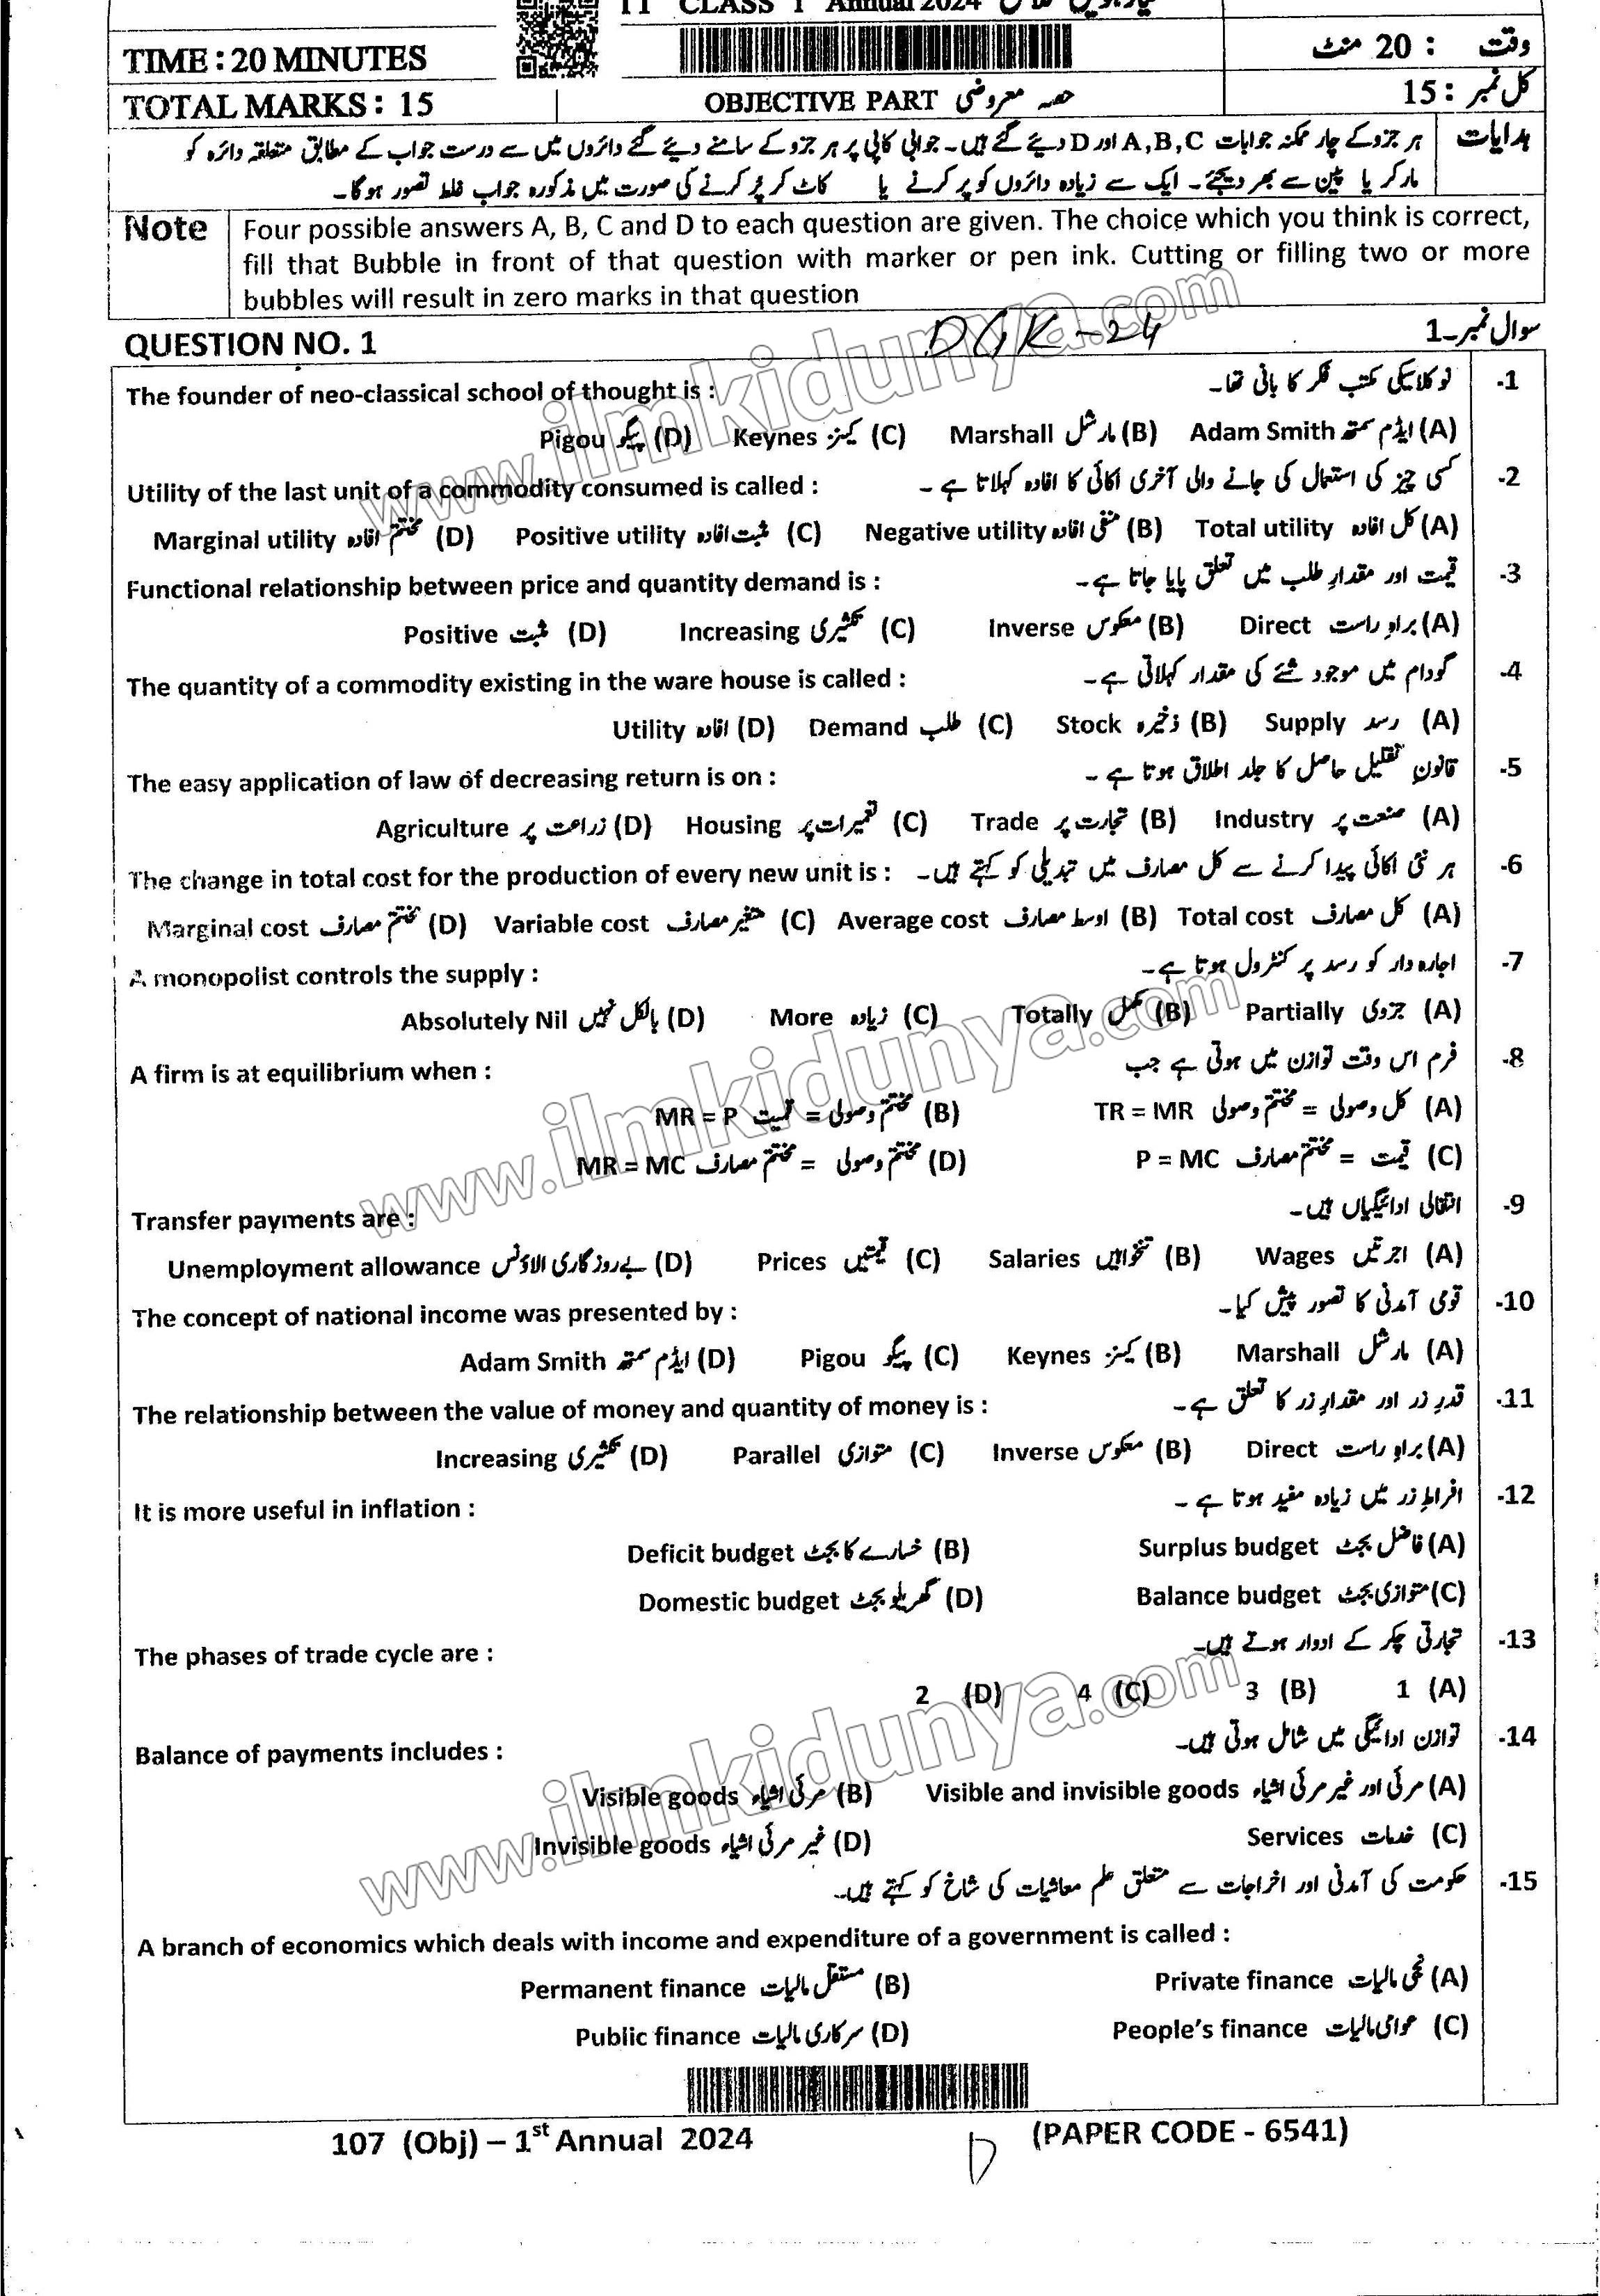 11 CLASS 1 Annual 2024
TIME : 20 MINUTES وقت : 20 منٹ
TOTAL MARKS : 15 OBJECTIVE PART حصہ معروضی کل نمبر : 15
ہدایات ہر جزو کے چار ممکنہ جوابات A,B,C اور D دیئے گئے ہیں۔ جوابی کاپی پر ہر جزو کے سامنے دیئے گئے دائروں میں سے درست جواب کے مطابق متعلقہ دائرہ کو
مارکر یا پین سے بھر دیجئے۔ ایک سے زیادہ دائروں کو پر کرنے یا کاٹ کر پُر کرنے کی صورت میں مذکورہ جواب غلط تصور ہوگا۔
Note Four possible answers A, B, C and D to each question are given. The choice which you think is correct,
fill that Bubble in front of that question with marker or pen ink. Cutting or filling two or more
bubbles will result in zero marks in that question
QUESTION NO. 1 DGK-24 سوال نمبر 1۔
The founder of neo-classical school of thought is : نوکلاسیکی مکتب فکر کا بانی تھا۔ -1
(A) ایڈم سمتھ Adam Smith (B) مارشل Marshall (C) کینز Keynes (D) پیگو Pigou
Utility of the last unit of a commodity consumed is called : کسی چیز کی استعمال کی جانے والی آخری اکائی کا افادہ کہلاتا ہے ۔ -2
(A) کل افادہ Total utility (B) منفی افادہ Negative utility (C) مثبت افادہ Positive utility (D) مختتم افادہ Marginal utility
Functional relationship between price and quantity demand is : قیمت اور مقدارِ طلب میں تعلق پایا جاتا ہے۔ -3
(A) براہِ راست Direct (B) معکوس Inverse (C) تکثیری Increasing (D) مثبت Positive
The quantity of a commodity existing in the ware house is called : گودام میں موجود شئے کی مقدار کہلاتی ہے۔ -4
(A) رسد Supply (B) ذخیرہ Stock (C) طلب Demand (D) افادہ Utility
The easy application of law of decreasing return is on : قانونِ تقلیل حاصل کا جلد اطلاق ہوتا ہے ۔ -5
(A) صنعت پر Industry (B) تجارت پر Trade (C) تعمیرات پر Housing (D) زراعت پر Agriculture
The change in total cost for the production of every new unit is : ہر نئی اکائی پیدا کرنے سے کل مصارف میں تبدیلی کو کہتے ہیں۔ -6
(A) کل مصارف Total cost (B) اوسط مصارف Average cost (C) متغیر مصارف Variable cost (D) مختتم مصارف Marginal cost
A monopolist controls the supply : اجارہ دار کو رسد پر کنٹرول ہوتا ہے۔ -7
(A) جزوی Partially (B) مکمل Totally (C) زیادہ More (D) بالکل نہیں Absolutely Nil
A firm is at equilibrium when : فرم اس وقت توازن میں ہوتی ہے جب -8
(A) کل وصولی = مختتم وصولی TR = MR (B) مختتم وصولی = قیمت MR = P
(C) قیمت = مختتم مصارف P = MC (D) مختتم وصولی = مختتم مصارف MR = MC
Transfer payments are : انتقالی ادائیگیاں ہیں۔ -9
(A) اجرتیں Wages (B) تنخواہیں Salaries (C) قیمتیں Prices (D) بے روزگاری الاؤنس Unemployment allowance
The concept of national income was presented by : قومی آمدنی کا تصور پیش کیا۔ -10
(A) مارشل Marshall (B) کینز Keynes (C) پیگو Pigou (D) ایڈم سمتھ Adam Smith
The relationship between the value of money and quantity of money is : قدرِ زر اور مقدارِ زر کا تعلق ہے۔ -11
(A) براہِ راست Direct (B) معکوس Inverse (C) متوازی Parallel (D) تکثیری Increasing
It is more useful in inflation : افراطِ زر میں زیادہ مفید ہوتا ہے ۔ -12
(A) فاضل بجٹ Surplus budget (B) خسارے کا بجٹ Deficit budget
(C) متوازی بجٹ Balance budget (D) گھریلو بجٹ Domestic budget
The phases of trade cycle are : تجارتی چکر کے ادوار ہوتے ہیں۔ -13
(A) 1 (B) 3 (C) 4 (D) 2
Balance of payments includes : توازن ادائیگی میں شامل ہوتی ہیں۔ -14
(A) مرئی اور غیر مرئی اشیاء Visible and invisible goods (B) مرئی اشیاء Visible goods
(C) خدمات Services (D) غیر مرئی اشیاء Invisible goods
حکومت کی آمدنی اور اخراجات سے متعلق علم معاشیات کی شاخ کو کہتے ہیں۔ -15
A branch of economics which deals with income and expenditure of a government is called :
(A) نجی مالیات Private finance (B) مستقل مالیات Permanent finance
(C) عوامی مالیات People's finance (D) سرکاری مالیات Public finance
107 (Obj) – 1st Annual 2024 D (PAPER CODE - 6541)
www.ilmkidunya.com
www.ilmkidunya.com
www.ilmkidunya.com